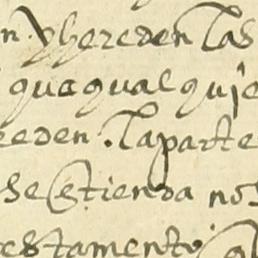 n. y hereden las
que qual quie
eden. la parte
se estienda no
testamento.